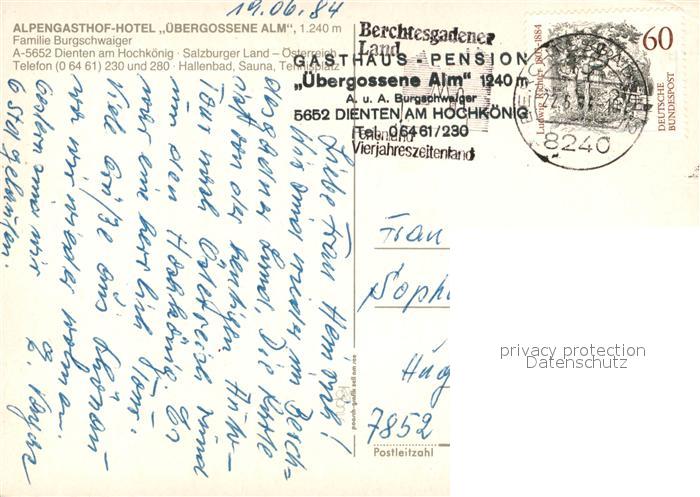 19.06.84
ALPENGASTHOF-HOTEL „ÜBERGOSSENE ALM“, 1.240 m
Familie Burgschwaiger
A-5652 Dienten am Hochkönig · Salzburger Land – Österreich
Telefon (0 64 61) 230 und 280 · Hallenbad, Sauna, Tennisplatz
Berchtesgadener
Land
GASTHAUS - PENSION
„Übergossene Alm“ 1240 m
A. u. A. Burgschwaiger
5652 DIENTEN AM HOCHKÖNIG
Tel. 06461/230
Ferienland
Vierjahreszeitenland
8240
Ludwig Richter 1803-1884
60
DEUTSCHE
BUNDESPOST
Liebe Frau
wir sind wieder im Berch-
tesgadener Land. Die Karte
ist von der heutigen
Tour nach Österreich rund
um den Hochkönig. Es
war eine herrliche Tour.
Viele Grüße aus
wo wir wieder wohnen.
Gestern sind wir
6 Std. gelaufen.
Frau
Soph
Hüg
7852
Postleitzahl
privacy protection
Datenschutz